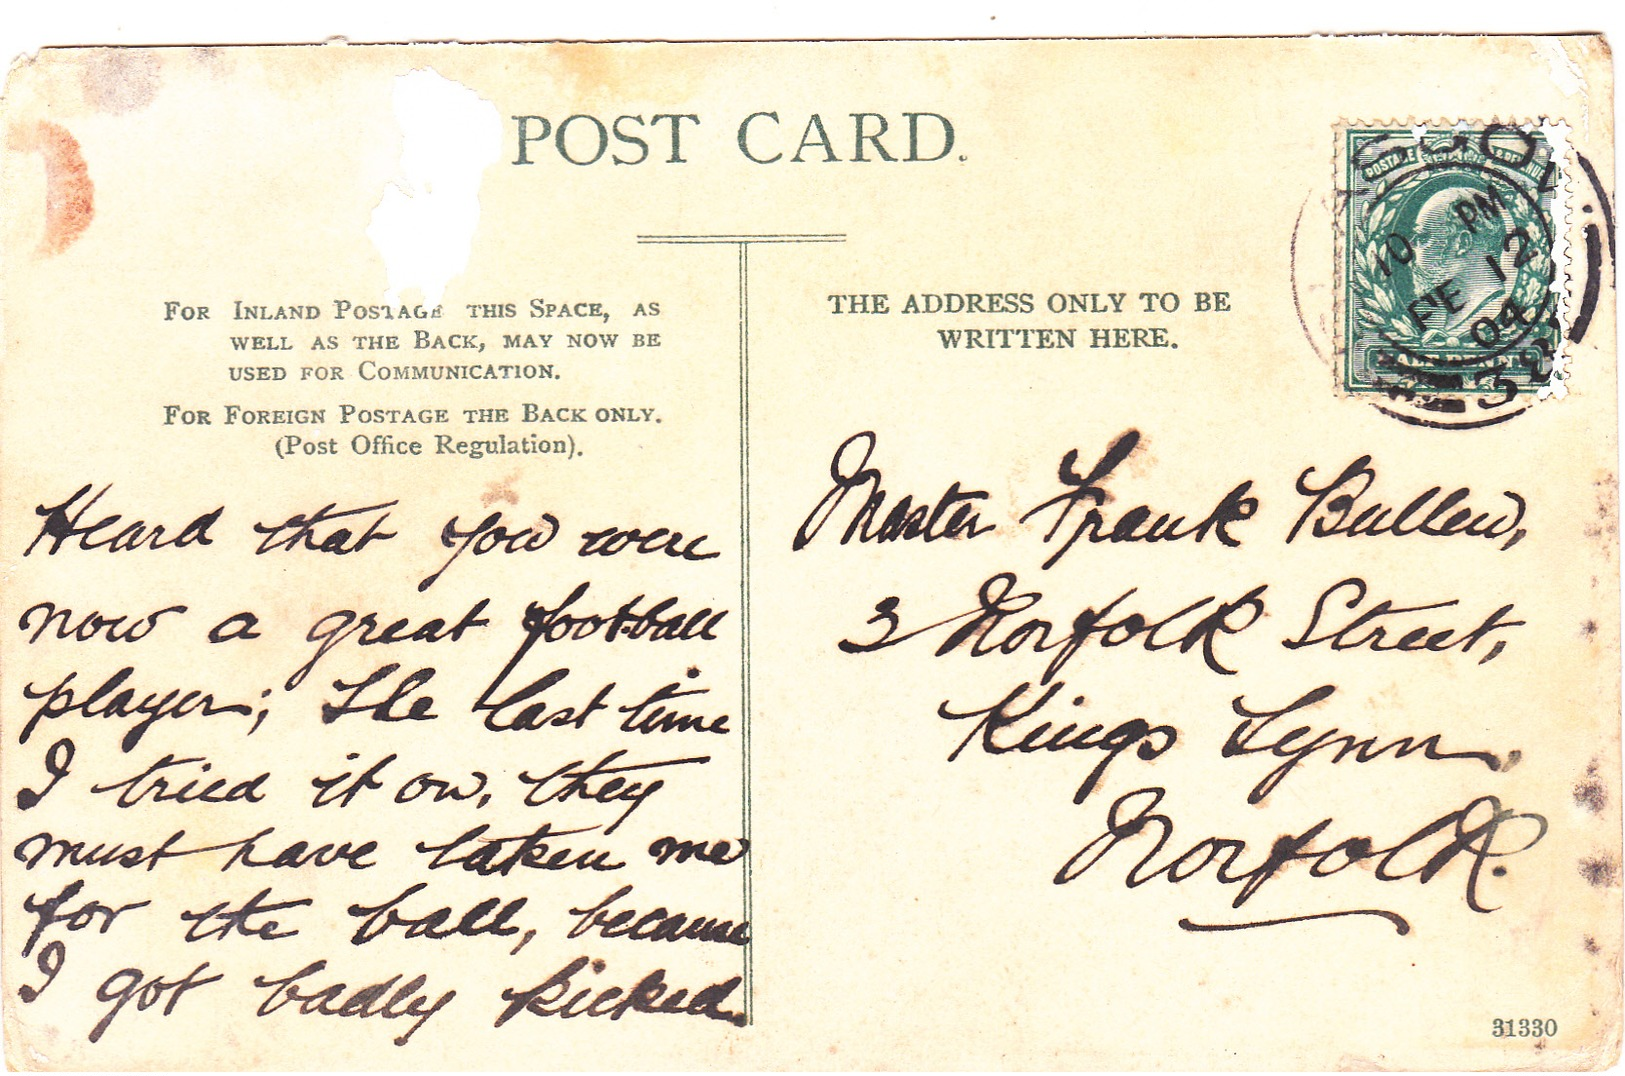 POST CARD.
FOR INLAND POSTAGE THIS SPACE, AS
WELL AS THE BACK, MAY NOW BE
USED FOR COMMUNICATION.
FOR FOREIGN POSTAGE THE BACK ONLY.
(Post Office Regulation).
Heard that you were
now a great football
player; The last time
I tried it on, they
must have taken me
for the ball, because
I got badly kicked.
THE ADDRESS ONLY TO BE
WRITTEN HERE.
POSTAGE
10 PM
FE 12
04
Master Frank Bullen,
3 Norfolk Street,
Kings Lynn.
Norfolk.
31330